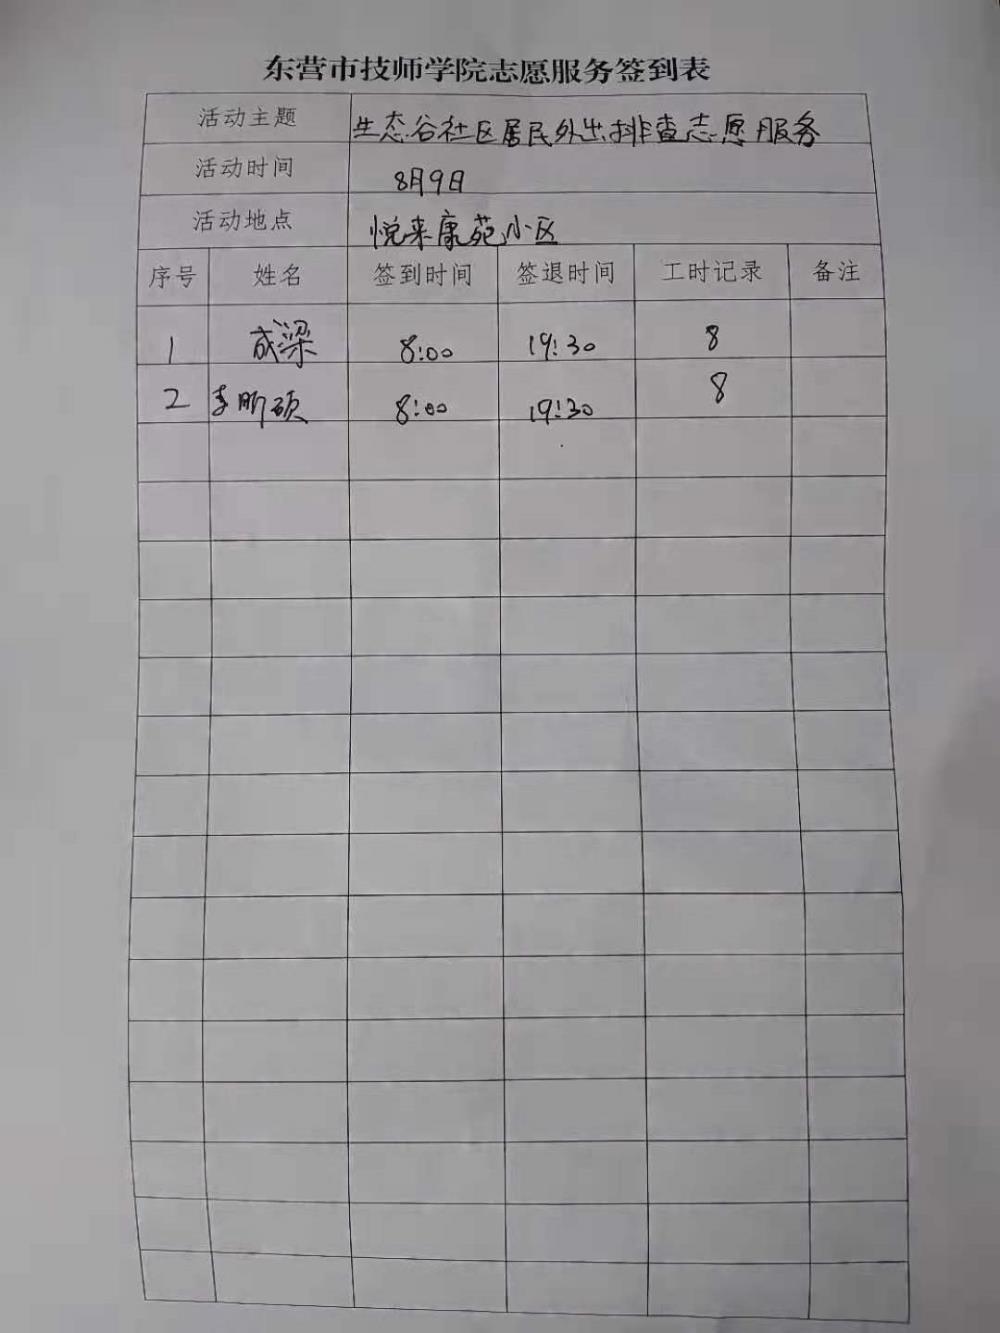 东营市技师学院志愿服务签到表
活动主题 生态谷社区居民外出排查志愿服务
活动时间 8月9日
活动地点 悦来康苑小区
序号 姓名 签到时间 签退时间 工时记录 备注
1 成梁 8:00 19:30 8
2 李昕硕 8:00 19:30 8